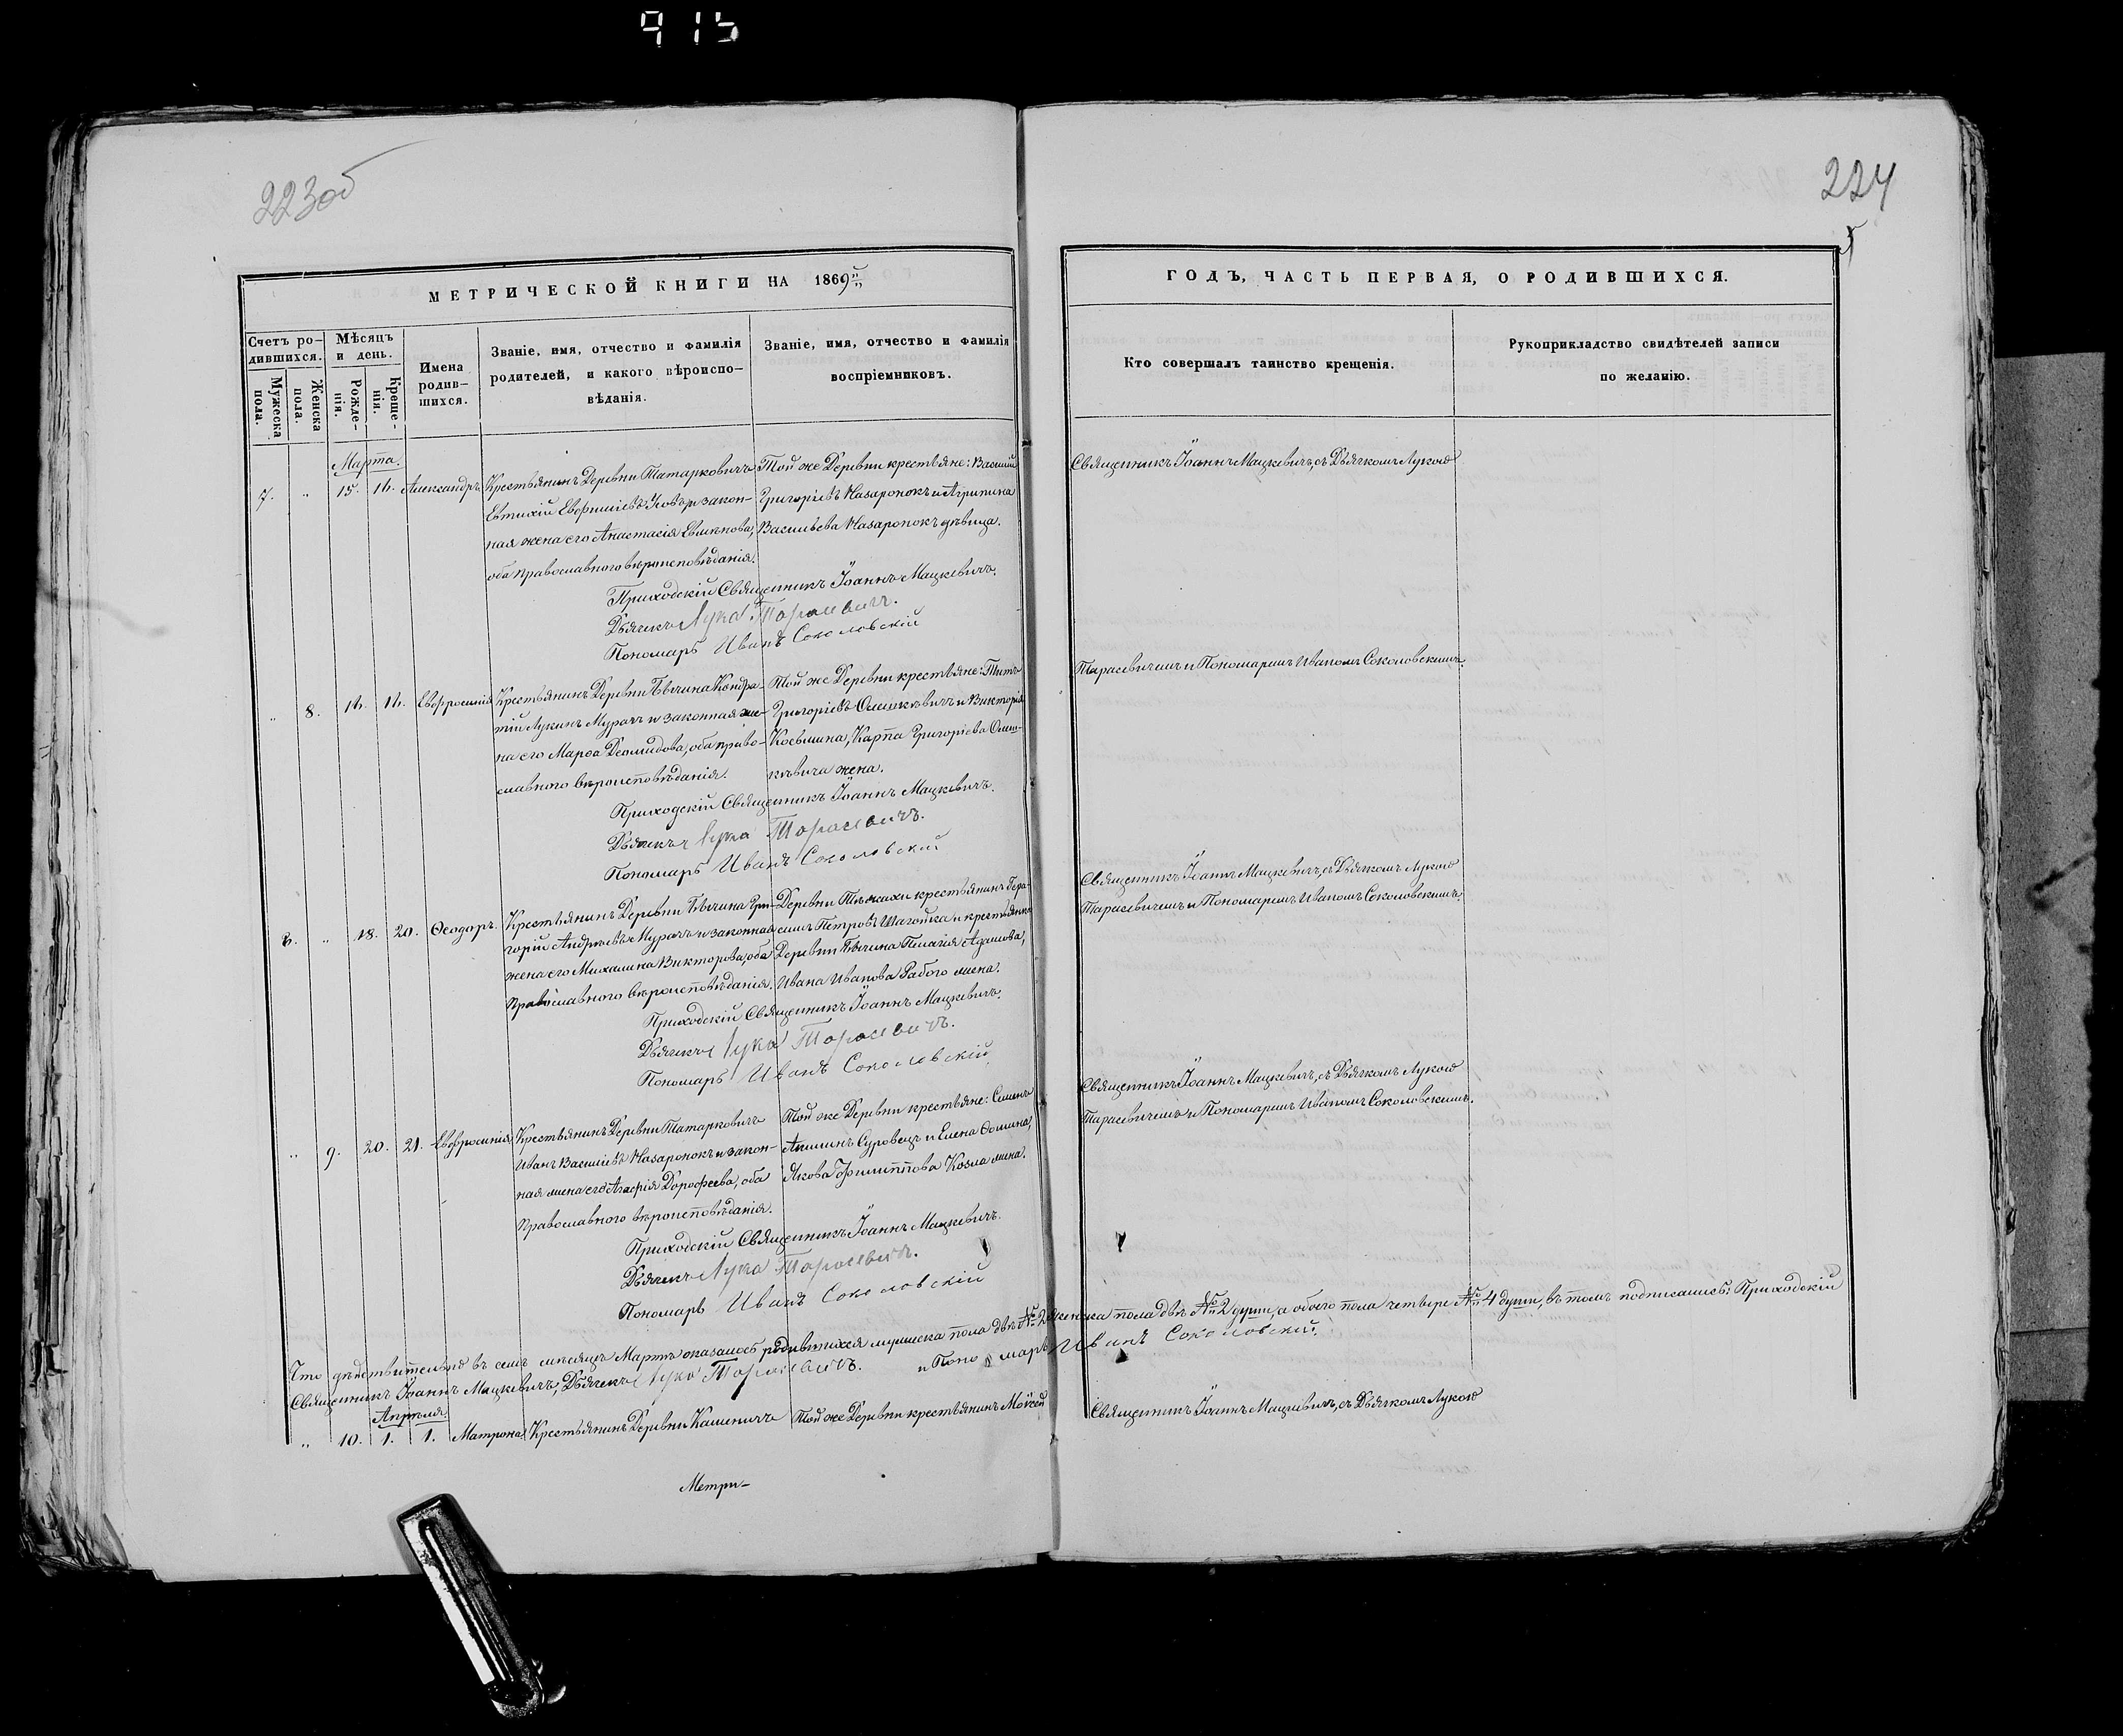 913
223об
224
5
МЕТРИЧЕСКОЙ КНИГИ НА 1869й
ГОДЪ, ЧАСТЬ ПЕРВАЯ, О РОДИВШИХСЯ.
Счетъ ро-
дившихся.
Мужеска
пола.
Женска
пола.
Мѣсяцъ
и день.
Рожде-
нія.
Креще-
нія.
Имена
родив-
шихся.
Званіе, имя, отчество и фамилія
родителей, и какого вѣроиспо-
вѣданія.
Званіе, имя, отчество и фамилія
воспріемниковъ.
Кто совершалъ таинство крещенія.
Рукоприкладство свидѣтелей записи
по желанію.
Марта.
7. " 15. 16. Александръ
Крестьянинъ Деревни Татарковичъ
Евтихій и закон-
ная жена его Анастасія
оба православнаго вѣроисповѣданія.
Той же Деревни крестьяне: Василій
Григорьевъ Назаронокъ и Агрипина
Васильева Назаронокъ дѣвица.
Священникъ Іоаннъ Мацкевичъ, съ Дьячкомъ Лукою
Тарасевичемъ и Пономаремъ Иваномъ Соколовскимъ.
Приходскій Священникъ Іоаннъ Мацкевичъ.
Дьячекъ Лука Тарасевичъ.
Пономарь Иванъ Соколовскій
" 8. 16. 16. Евфросинія
Крестьянинъ Деревни Кондра-
тій Лукинъ Мурачъ и законная же-
на его Марѳа Деомидова, оба право-
славного вѣроисповѣданія.
Той же Деревни крестьяне: Титъ
Григорьевъ и Викторія
Косьмина, Карпа Григорьева
жена.
Приходскій Священникъ Іоаннъ Мацкевичъ.
Дьячекъ Лука Тарасевичъ.
Пономарь Иванъ Соколовскій
Священникъ Іоаннъ Мацкевичъ, съ Дьячкомъ Лукою
Тарасевичемъ и Пономаремъ Иваномъ Соколовскимъ.
8. " 18. 20. Ѳеодоръ.
Крестьянинъ Деревни Гри-
горій Андреевъ Мурачъ и законная
жена его Михалина Викторова, оба
Православного вѣроисповѣданія.
Деревни крестьянинъ Гера-
симъ Петровъ и крестьянка
Деревни Пелагія Адамова,
Ивана Иванова Рабого жена.
Приходскій Священникъ Іоаннъ Мацкевичъ.
Дьячекъ Лука Тарасевичъ.
Пономарь Иванъ Соколовскій
Священникъ Іоаннъ Мацкевичъ, съ Дьячкомъ Лукою
Тарасевичемъ и Пономаремъ Иваномъ Соколовскимъ.
" 9. 20. 21. Евфросинія
Крестьянинъ Деревни Татарковичъ
Иванъ Васильевъ Назаронокъ и закон-
ная жена его Агафія Дорофеева, оба
Православного вѣроисповѣданія.
Той же Деревни крестьяне: Семенъ
Суровецъ и Елена Ѳомина,
Якова Филиппова Козла жена.
Приходскій Священникъ Іоаннъ Мацкевичъ.
Дьячекъ Лука Тарасевичъ.
Пономарь Иванъ Соколовскій
Что дѣйствительно въ семъ мѣсяцѣ Мартѣ оказалось родившихся мужеска пола двѣ 2 женска пола двѣ 2 души, а обоего пола четыре 4 души, въ томъ подписались: Приходскій
Священникъ Іоаннъ Мацкевичъ, Дьячекъ Лука Тарасевичъ. и Пономарь Иванъ Соколовскій.
Апрѣля.
" 10. 1. 1. Матрона
Крестьянинъ Деревни Каменичъ
Той же Деревни крестьянинъ Моисей
Священникъ Іоаннъ Мацкевичъ, съ Дьячкомъ Лукою
Метри-